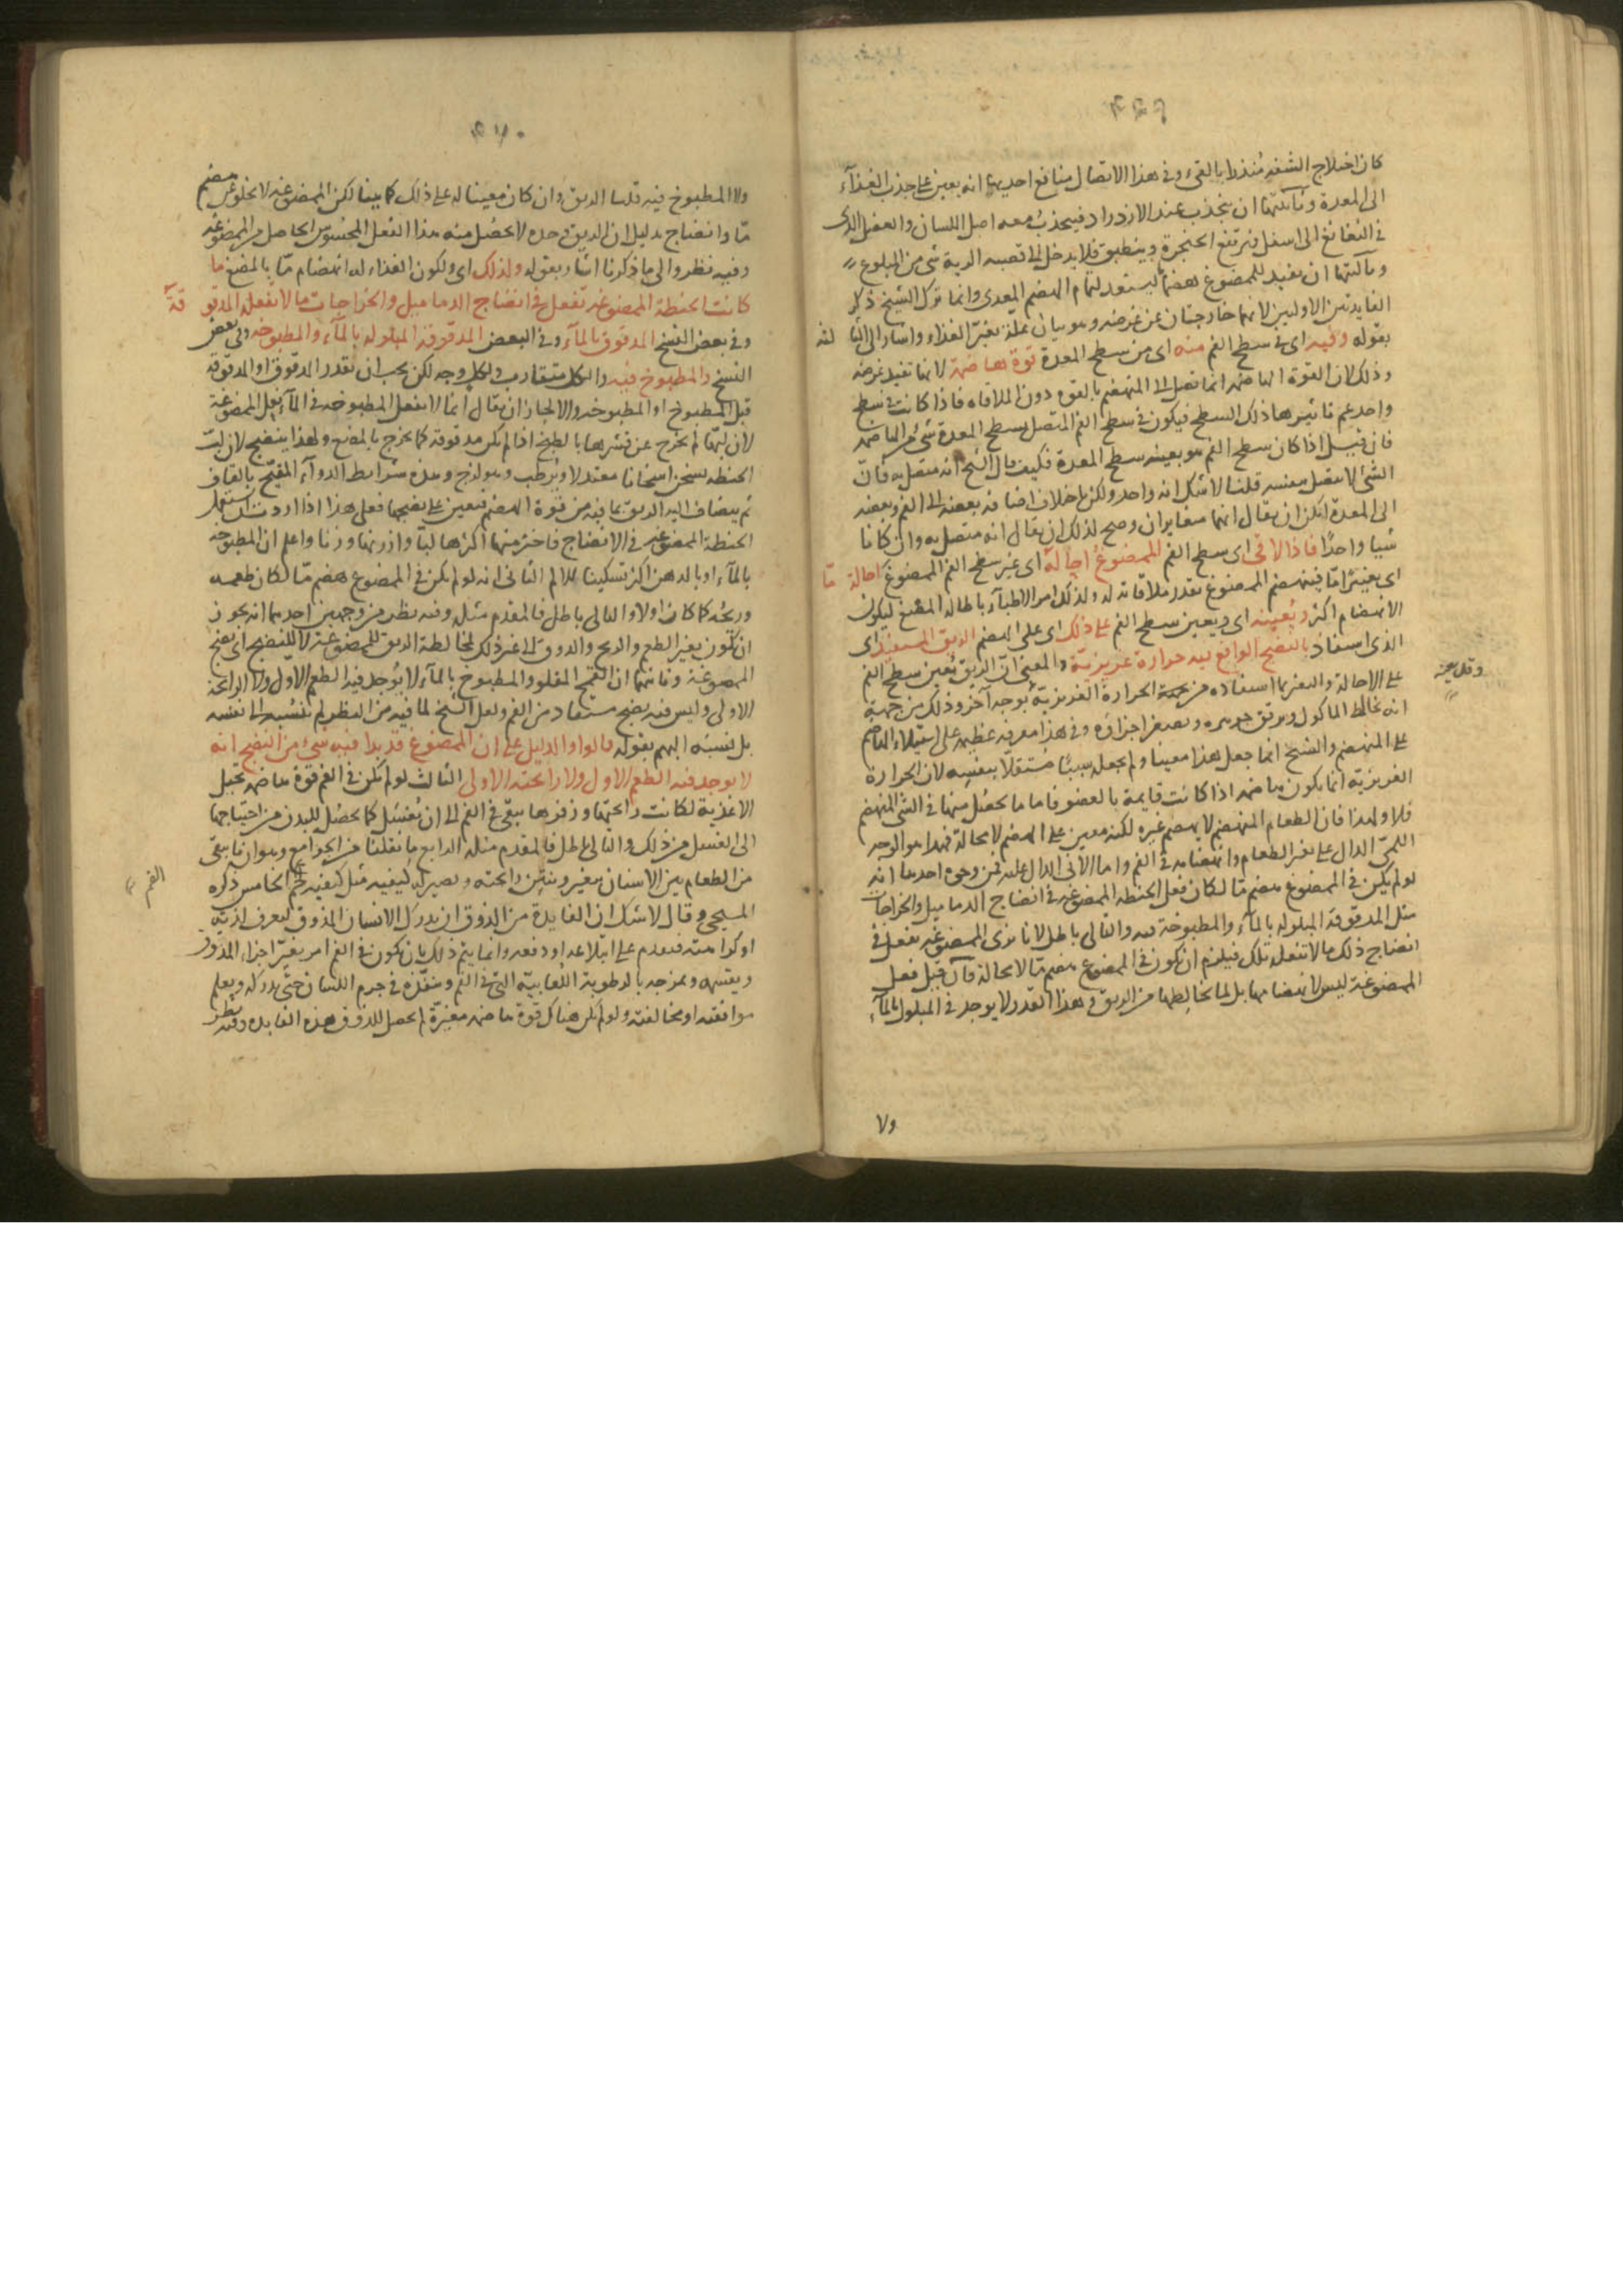 كان اختلاج الشفة منذرا بالقيء وفي هذا الاتصال منافع احديها انه يعين على جذب الغذآء
الى المعدة وثآنيتها ان ينجذب عند الازدراد فينجذب معه اصل اللسان والعضل الذى
في النغانغ الى اسفل فيرتفع الحنجرة وينطبق فلا يدخل الى قصبه الرية شى من المبلوع
وثالثتها ان يفيد للممضوغ هضما ليستعد لتمام الهضم المعدى وانما ترك الشيخ ذكر
الفايدتين الاوليين لانهما خارجتان عن غرضه وهو بيان علة تغير الغذاء واشار الى الثا لثه
بقوله وفيه اى في سطح الفم منه اى من سطح المعدة قوة هاضمة لانها تفيد غرضه
وذلك لان القوة الهاضمه انما تصل الى المنهضم بالقوه دون الملاقاه فاذا كانت في سطح
واحد عم تاثيرها ذلك السطح فيكون في سطح الفم المتصل بسطح المعدة شى من الهاضمه
فان قيل اذا كان سطح الفم هو بعينه سطح المعدة فكيف قال الشيخ انه متصل به فان
الشئ لا يتصل بنفسه قلنا لاشك انه واحد ولكن باختلاف اضافة بعضه الى الفم وبعضه
الى المعدة امكن ان يقال انهما متغايران وصح لذلك ان يقال انه متصل به وان كانا
شيا واحدا فاذا لاقى اى سطح الفم الممضوغ احاله اى غير سطح الفم الممضوغ احالة مّا
اى تغييرًا مّا فينهضم الممضوغ بقدر ملاقاته له ولذلك امر الاطبآء باطالة المضغ ليكون
الانهضام اكثر ويعينه اى ويعين سطح الفم على ذلك اى على الهضم الريق المستفيد اى
الذى استفاد بالنضج الواقع فيه حرارة غريزيّة والمعنى انّ الريق يعين سطح الفم
على الاحالة والتغير بما استفاده من الحرارة الغريزية بوجه آخر وذلك من جهة
انه يخالط الماكول ويرقق جرمه ويصغر اجزاؤه وفي هذا معونه عظيمه على استيلاء الهاضم
على المنهضم والشيخ انما جعل هذا معينا ولم يجعله سببًا مستقلا بنفسه لان الحرارة
الغريزية انما يكون هاضمه اذا كانت قايمة بالعضو فاما ما يحصل منها في الشئ المنهضم
فلا ولهذا فان الطعام المنهضم لا يهضم غيره لكنه معين على الهضم لا محالة فهذا هو الوجه
اللمّى الدال على تغير الطعام وانهضامه في الفم واما الانى الدال عليه فمن وجوه احدها انه
لو لم يكن في الممضوغ هضم مّا لكان فعل الحنطه الممضوغه في انضاج الدماميل والخراجات
مثل المدقوقة المبلوله بالمآء والمطبوخة فيه والتالى باطل لانا نرى الممضوغه تفعل في
انضاج ذلك مالا تفعله تلك فيلزم ان يكون في الممضوغ هضم مّا لا محالة فان قيل فعل
الممضوغة ليس لانهضامها بل لما يخالطها من الريق وهذا القدر لا يوجد في المبلول بالمآء
ولا
ولا المطبوخ فيه قلنا الريق وان كان معينا له على ذلك كما بينا لكن الممضوغ عنه لا يخلو عن هضم
مّا وانضاج بدليل ان الريق وحده لا يحصل منه هذا الفعل المحسوس الحاصل من الممضوغه
وفيه نظر والى ما ذكرنا اشار بقوله ولذلك اى ولكون الغذاء له انهضام مّا بالمضغ ما
كانت الحنطة الممضوغة تفعل في انضاج الدماميل والخراجات مالا تفعله المدقو قة
وفي بعض النسخ المدقوق بالمآء وفي البعض المدقوقة المبلوله بالمآء والمطبوخه وفي بعض
النسخ والمطبوخ فيه والكل متقارب ولكل وجه لكن يجب ان يقدر المدقوق او المدقوقة
قبل المطبوخ او المطبوخه والا لجاز ان يقال انما لا تفعل المطبوخه في المآء فعل الممضوغة
لان لبّها لم يخرج عن قشرها بالطبخ اذا لم يكن مدقوقة كما يخرج بالمضغ ولهذا ينضج لان لبّ
الحنطه يسخن اسخانا معتدلا ويرطب وهو لزج وهذه شرايط الدوآء المقيّح بالقاف
ثم يضاف اليه الريق بما فيه من قوة الهضم فيعين على نضجها فعلى هذا اذا اردت ان تستعمل
الحنطة الممضوغه في الانضاج فاختر منها اكثرها لبّا وارزنها وزنا واعلم ان المطبوخه
بالمآء او بالدهن اكثر تسكينا للالم الثانى انه لو لم يكن في الممضوغ هضم مّا لكان طعمه
وريحه كما كان اولا والتالى باطل فالمقدم مثله وفيه نظر من وجهين احدهما انه يجوز
ان يكون تغير الطعم والريح والذوق الى غير ذلك لمخالطة الريق للممضوغة لا للنضج اى نضج
الممضوغة وثانيهما ان القمح المقلو والمطبوخ بالمآء لا يوجد فيه الطعم الاول ولا الرائحة
الاولى وليس فيه نضج مستفاد من الفم ولعل الشيخ لما فيه من النظر لم ينسبه الى نفسه
بل نسبه اليهم بقوله قالوا والدليل على ان الممضوغ قد بدا فيه شئ من النضج انه
لا يوجد فيه الطعم الاول ولا رائحته الاولى الثالث لو لم يكن في الفم قوة هاضمة تحيل
الاغذية لكانت رائحتها وزفرها يبقى في الفم الى ان يغسل كما يحصل لليدين من احتياجها
الى الغسل من ذلك والتالى باطل فالمقدم مثله الرابع ما نقلنا من الجوامع وهو ان ما يبقى
من الطعام بين الاسنان يتغير وينتن رائحته ويصير له كيفية مثل كيفية لحم الفم الخامس ذكره
المسيحى وقال لاشك ان الفايدة من الذوق ان يدرك الانسان المذوق ليعرف لذّته
او كراهته فيقدم على ابتلاعه او دفعه وانما يتم ذلك بان يكون في الفم امر يغيّر اجزاء المذوق
ويقسمه ويمزجه بالرطوبة اللعابيّة التى في الفم وينفذه في جرم اللسان حتى يدركه ويعلم
موافقته او مخالفته ولو لم يكن هناك قوة هاضمة مغيّرة لم يحصل للذوق هذه الفايده وفيه نظر